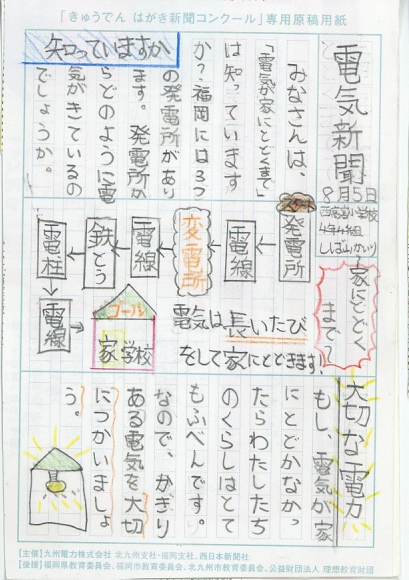 「きゅうでん はがき新聞コンクール」専用原稿用紙
電気新聞
8月5日
小学校
4年4組
知っていますか
みなさんは、
「電気が家にとどくまで」
は知っています
か?福岡には3つ
の発電所があり
ます。発電所か
らどのように電
気がきているの
でしょうか。
家にとどく
まで
スタート
発電所
電線
変電所
電線
鉄とう
電柱
電線
ゴール
家学校
電気は長いたび
をして家にとどきます!
大切な電力
もし、電気が家
にとどかなかっ
たらわたしたち
のくらしはとて
もふべんです。
なので、かぎり
ある電気を大切
につかいましょ
う。
【主催】九州電力株式会社 北九州支社・福岡支社、西日本新聞社
【後援】福岡県教育委員会、福岡市教育委員会、北九州市教育委員会、公益財団法人 理想教育財団